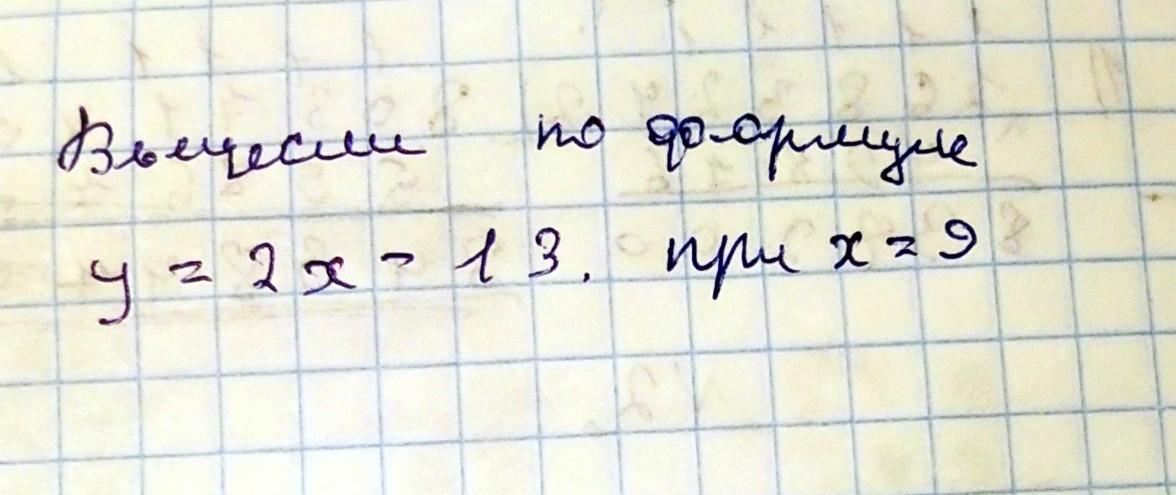 Вычесли по формуле
y = 2x - 13. при x = 9